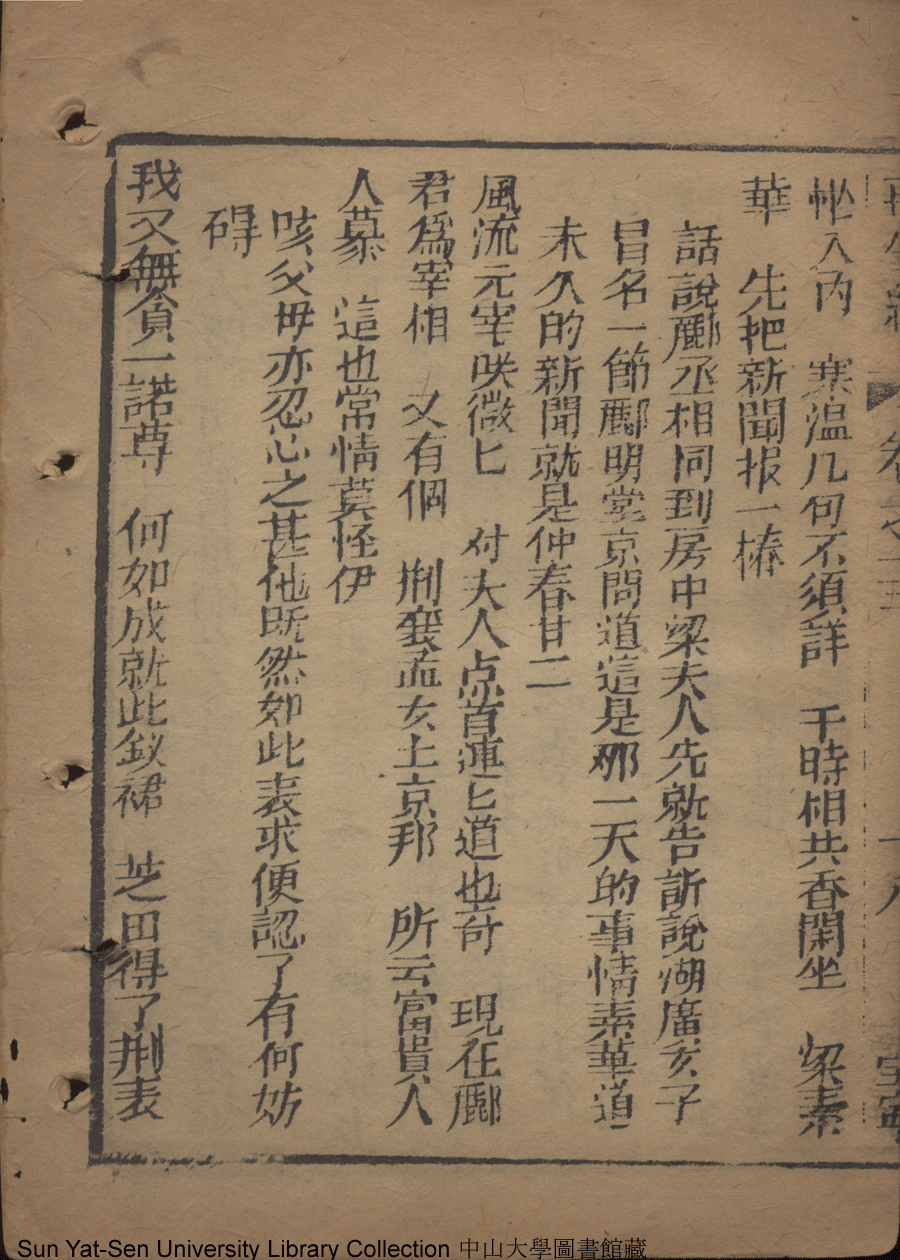 再生緣 卷之十五 十八 寧
怭入內 寒温几句不須詳 千時相共香閑坐 梁素
華 先把新聞报一樁
話說酈丞相同到房中梁夫人先就告訴說湖廣亥子
冒名一節酈明堂京問道這是那一天的事情素華道
未久的新聞就是仲春廿二
風流元宰咲微匕 付大人点首連匕道也奇 現在酈
君爲宰相 又有個 荆襄孟女上京邦 所云富貴人
人慕 這也常情莫怪伊
咳父毋亦忍心之甚他既然如此表求便認了有何妨
碍
我又無貪一諾尊 何如成就此釵裙 芝田得了荆表
Sun Yat-Sen University Library Collection 中山大學圖書館藏